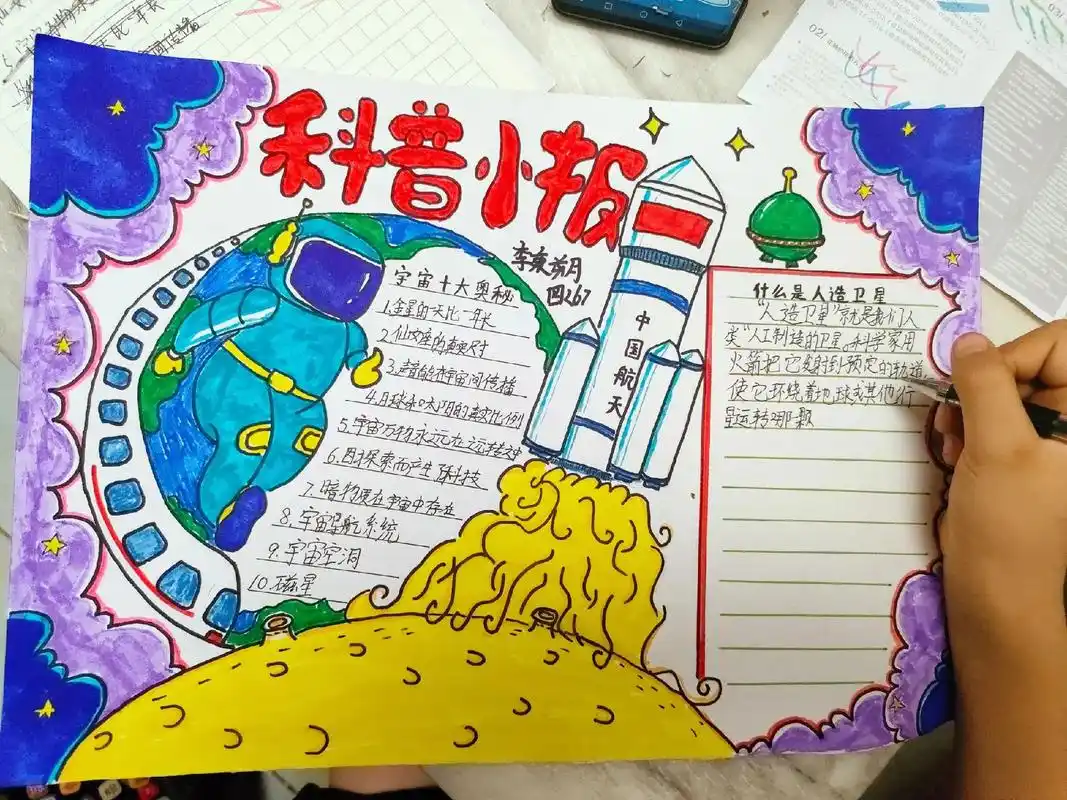 科普小报
李東前月
四267
宇宙十大奥秘
1.金星的天比一年长
2.仙女座的真实尺寸
3.声音的宇宙间传播
4.月球和太阳的真实比例
5.宇宙万物永远在运转对
6.因探索而产生了科技
7.暗物质在宇宙中存在
8.宇宙导航系统
9.宇宙空洞
10.磁星
中国航天
什么是人造卫星
"人造卫星"就是我们人
类"人工制造的卫星.科学家用
火箭把它发射到预定的轨道,
使它环绕着地球或其他行
星运转哪颗